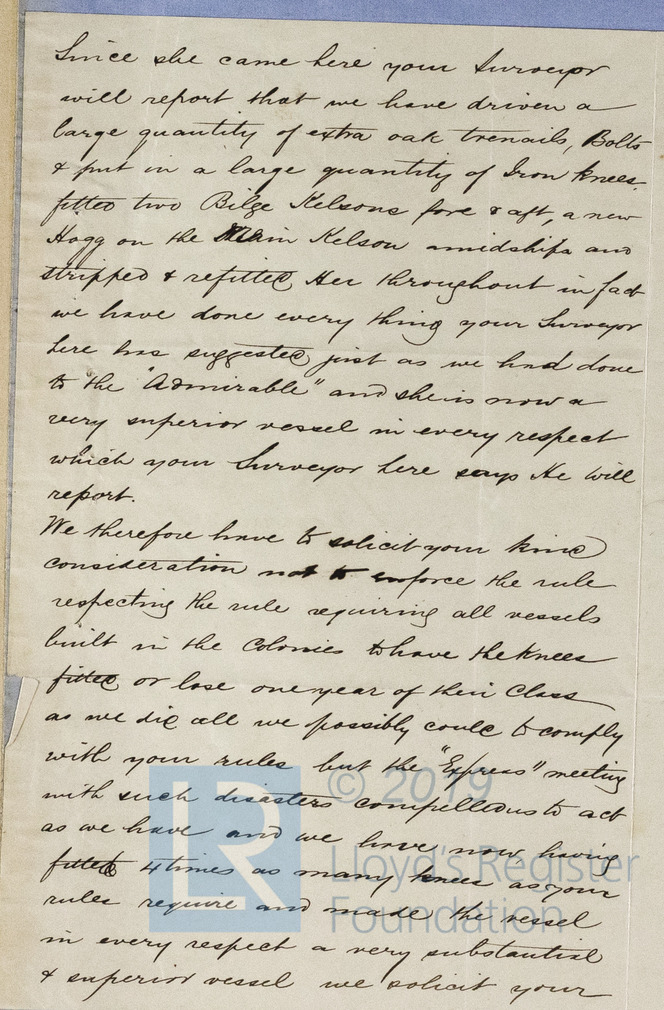 Since she came here your Surveyor
will report that we have driven a
large quantity of extra oak trenails, Bolts
& put in a large quantity of Iron knees.
fitted two Bilge Kelsons fore & aft, a new
Hogg on the Main Kelson amidships and
stripped & refitted Her throughout in fact
we have done every thing your Surveyor
here has suggested just as we had done
to the "Admirable" and she is now a
very superior vessel in every respect
which your Surveyor here says He will
report.
We therefore have to solicit your kind
consideration not to enforce the rule
respecting the rule requiring all vessels
built in the Colonies to have the knees
fitted or lose one year of their Class
as we did all we possibly could to comply
with your rules but the "Express" meeting
with such disasters compelled us to act
as we have and we have now having
fitted 4 times as many knees as your
rules require and made the vessel
in every respect a very substantial
& superior vessel we solicit your
© 2019
LR
Lloyd's Register
Foundation